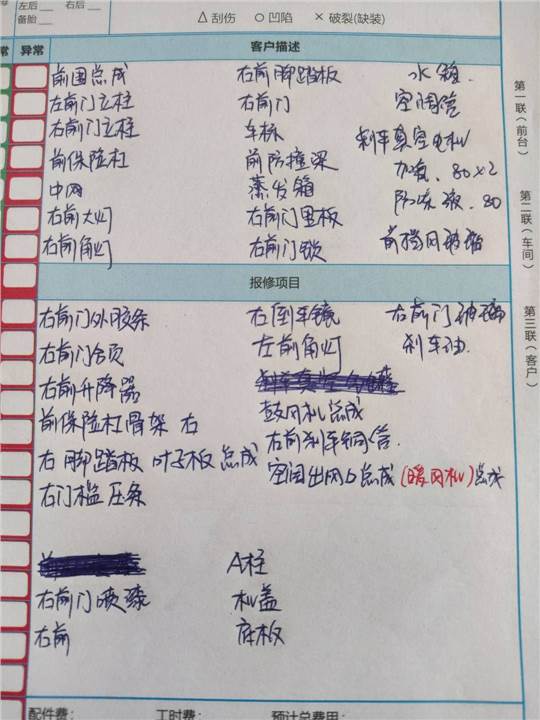 左后 右后
备胎 △刮伤 ○凹陷 ×破裂(缺装)
常 异常 客户描述
前围总成 右前脚踏板 水箱
左前门立柱 右前门 空调管
右前门立柱 车标 刹车真空电机
前保险杠 前防撞梁 加氟.80×2
中网 蒸发箱 防冻液.80
右前大灯 右前门里板
右前角灯 右前门锁 前挡风玻璃
第一联(前台)
第二联(车间)
第三联(客户)
报修项目
右前门外胶条 右倒车镜 右前门玻璃
右前门合页 左前角灯 刹车油
右前升降器
前保险杠骨架 右 鼓风机总成
右前刹车铜管
右 脚踏板 叶子板 总成 空调出风口总成(暖风机)总成
右门槛压条
A柱
右前门喷漆 机盖
右前 底板
配件费: 工时费: 预计总费用: